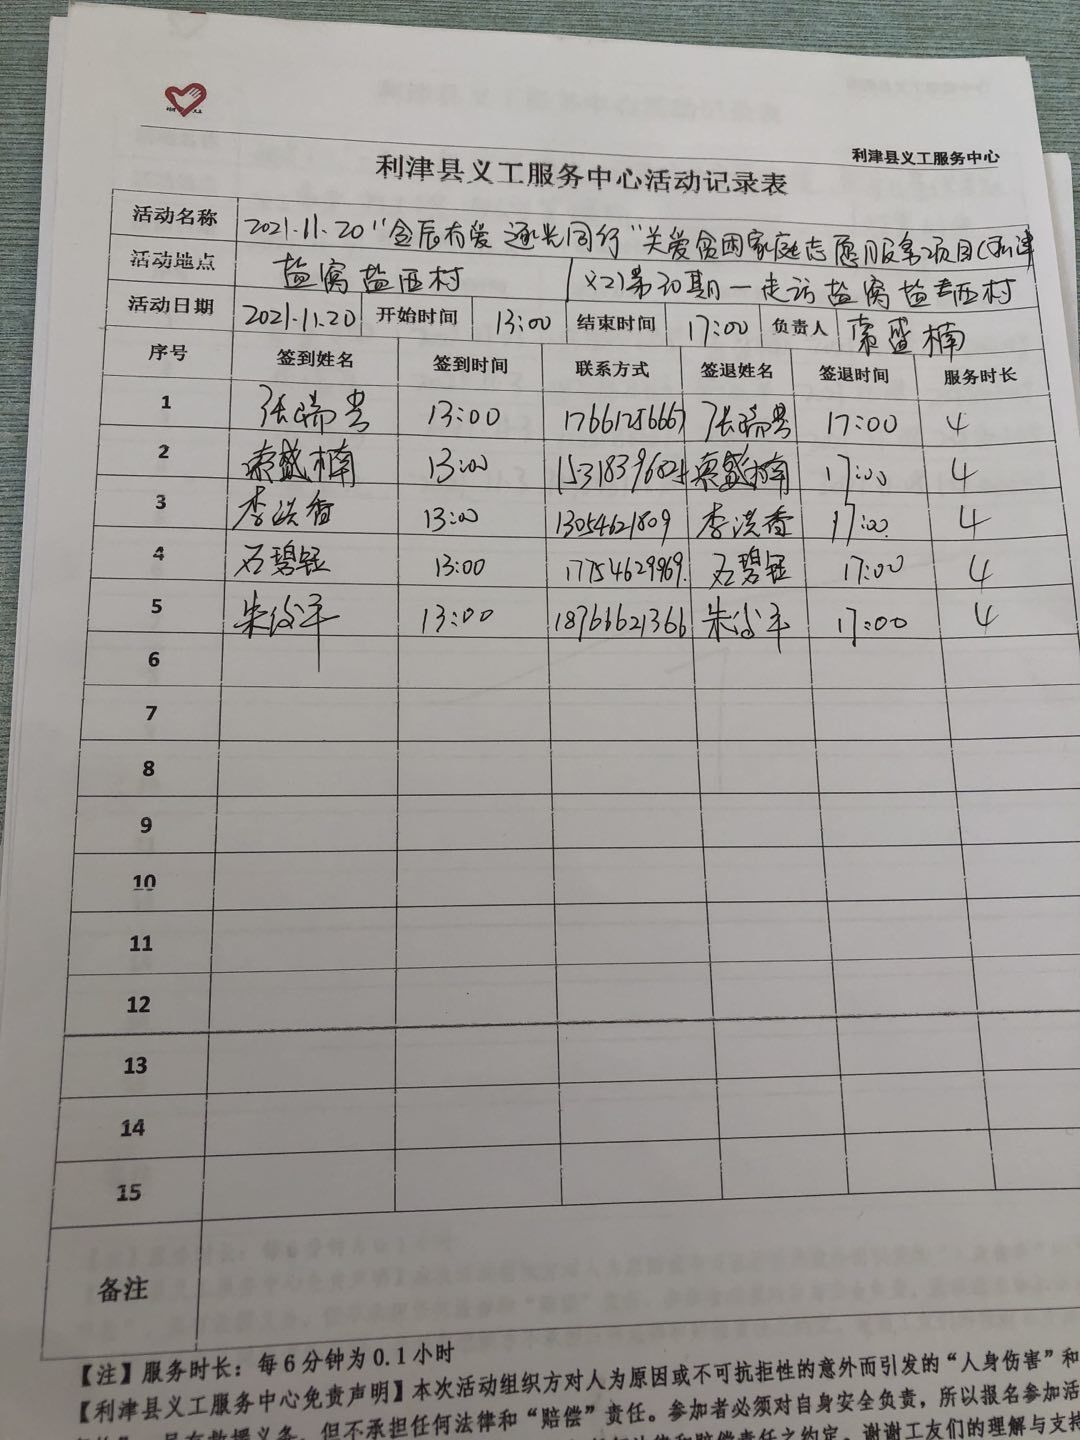 利津县义工服务中心
利津县义工服务中心活动记录表
活动名称 2021.11.20“金辰有爱 逐光同行”关爱贫困家庭志愿服务项目(利津
活动地点 盐窝盐西村 义工)第30期—走访盐窝盐西村
活动日期 2021.11.20 开始时间 13:00 结束时间 17:00 负责人 索盛楠
序号 签到姓名 签到时间 联系方式 签退姓名 签退时间 服务时长
1 张瑞贵 13:00 17661256667 张瑞贵 17:00 4
2 索盛楠 13:00 索盛楠 17:00 4
3 李洪香 13:00 13054621809 李洪香 17:00 4
4 石碧钰 13:00 17754629969 石碧钰 17:00 4
5 13:00 18766621366 17:00 4
6
7
8
9
10
11
12
13
14
15
备注
【注】服务时长：每6分钟为0.1小时
【利津县义工服务中心免责声明】本次活动组织方对人为原因或不可抗拒性的意外而引发的“人身伤害”和
具有救援义务，但不承担任何法律和“赔偿”责任。参加者必须对自身安全负责，所以报名参加活
法律和赔偿责任之约定。谢谢工友们的理解与支持